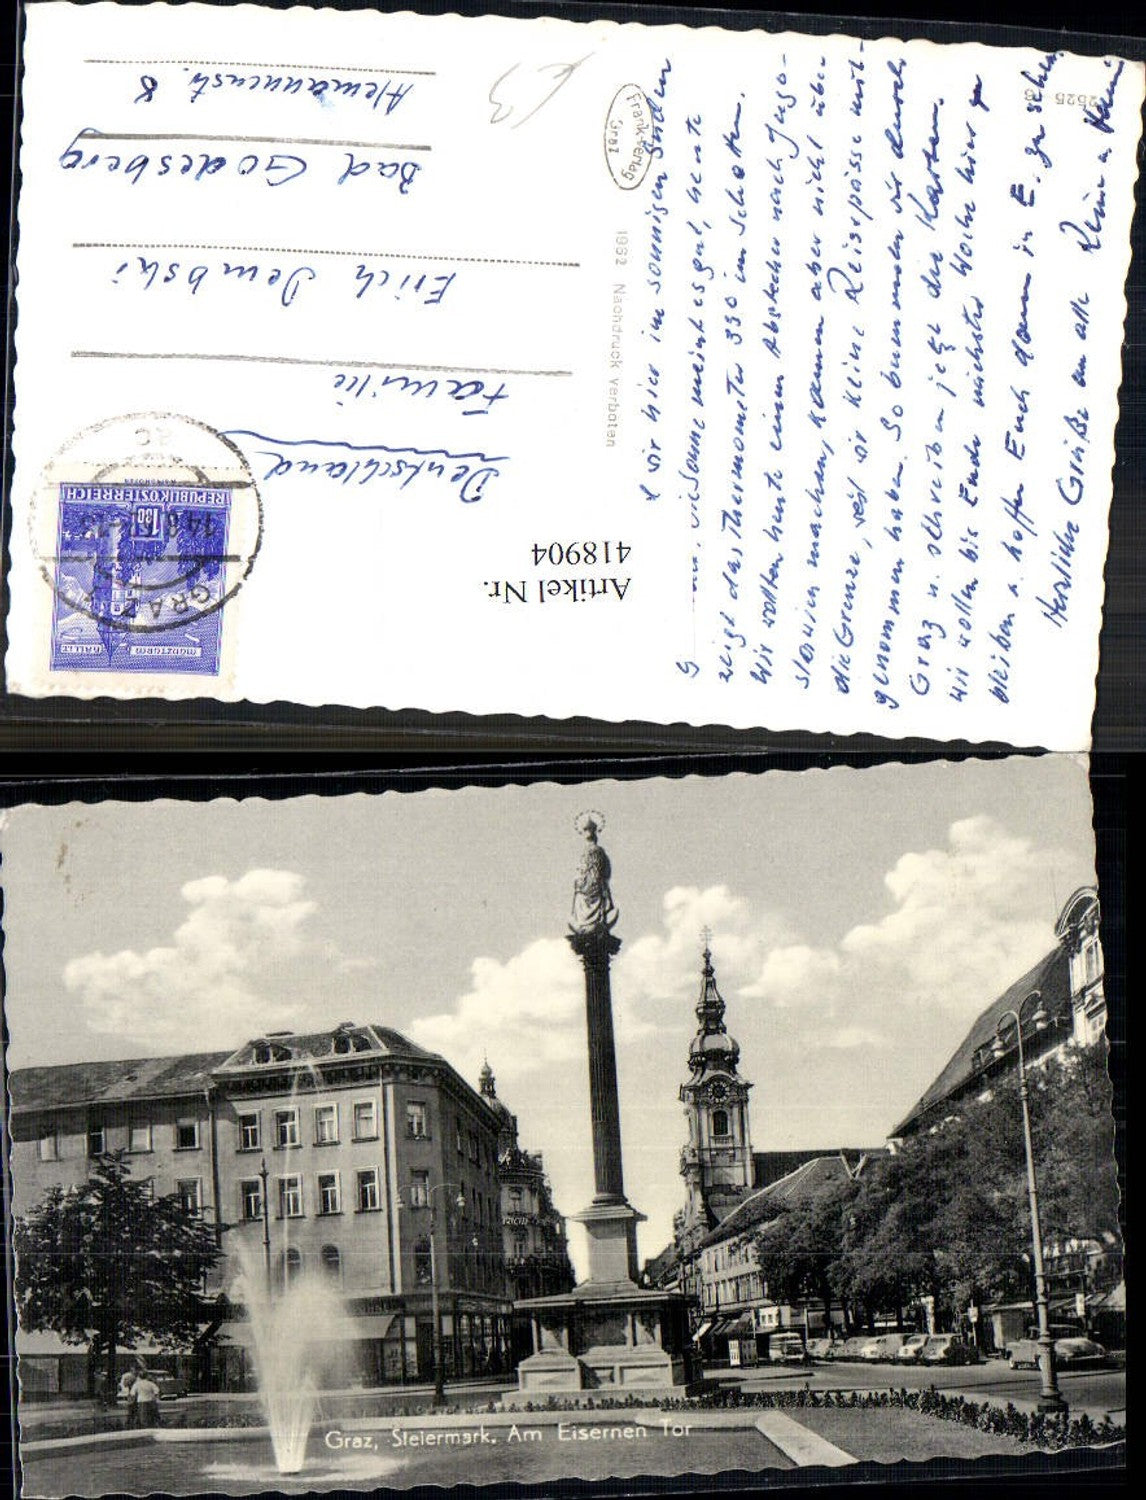 wir hier im sonnigen Süden
Sonne meint es gut, heute
zeigt das Thermometer 33° im Schatten.
Wir wollten heute einen Abstecher nach Jugo-
slawien machen, kamen aber nicht über
die Grenze, weil wir keine Reisepässe mit-
genommen haben. So bummeln wir durch
Graz u. schreiben jetzt die Karten.
Wir wollen bis Ende nächster Woche hier
bleiben u. hoffen Euch dann in E. zu sehen.
Herzliche Grüße an alle
2525
Frank-Verlag
Graz
1962 Nachdruck verboten
Deutschland
Familie
Erich Dembski
Bad Godesberg
Alemannenstr. 8
REPUBLIK ÖSTERREICH
1.80
MÜNZTURM HALL I. T.
GRAZ
Artikel Nr.
418904
Graz, Steiermark. Am Eisernen Tor